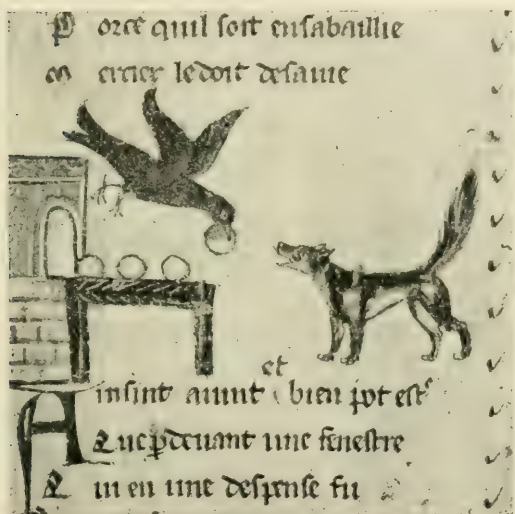 P orce quil soit en sa baillie
M ercier le doit de sa uie
et
A insint auint bien pot estr
Q ue pdeuant une fenestre
Q ui en une despense fu